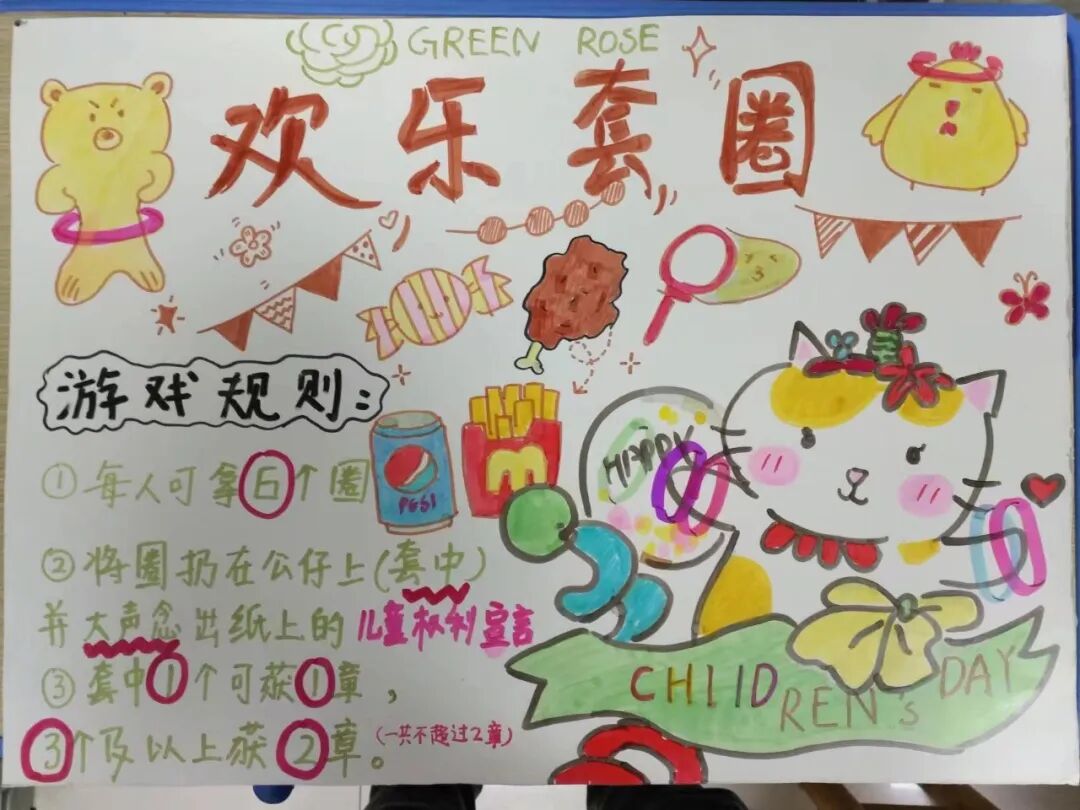 GREEN ROSE
欢乐套圈
游戏规则:
① 每人可拿6个圈
② 将圈扔在公仔上(套中)
并大声念出纸上的儿童权利宣言
③ 套中1个可获1章,
3个及以上获2章。(一共不超过2章)
PESI
M
HAPPY
CHIIDREN's DAY